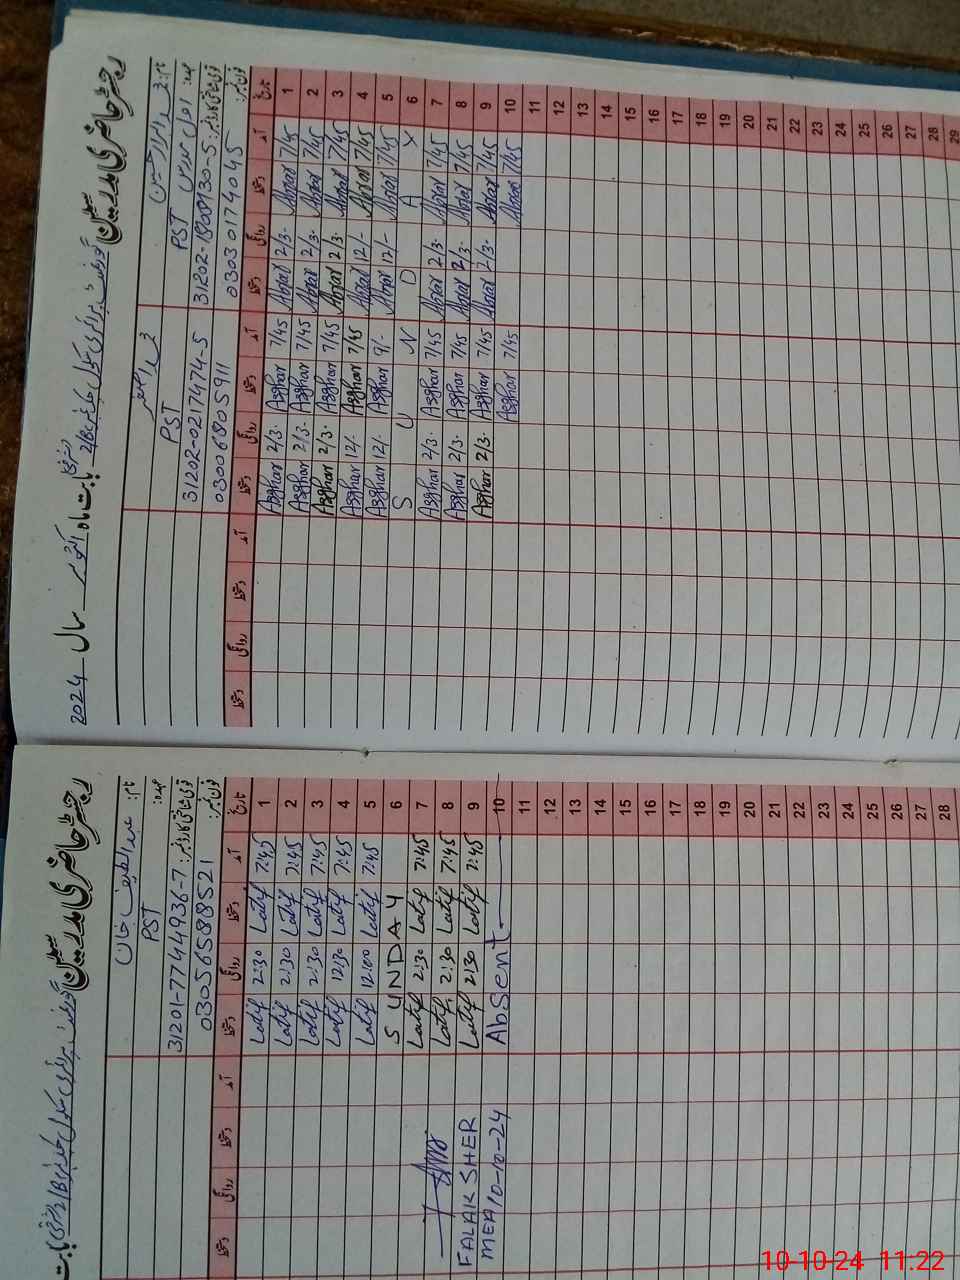 رجسٹر حاضری مدرسین
بابت ماہ اکتوبر سال 2024
نام:
عہدہ: PST PST
قومی شناختی کارڈ نمبر: 31202-0217474-5
فون نمبر: 03030174045 03006805911
تاریخ آمد دستخط روانگی دستخط آمد دستخط روانگی دستخط آمد دستخط روانگی دستخط
1 7/45 Abrar 2/3. Abrar 7/45 Asghar 2/3. Asghar
2 7/45 Abrar 2/3. Abrar 7/45 Asghar 2/3. Asghar
3 7/45 Abrar 2/3. Abrar 7/45 Asghar 2/3. Asghar
4 7/45 Abrar 12/- Abrar 7/45 Asghar 12/- Asghar
5 7/45 Abrar 12/- Abrar 9/- Asghar 12/- Asghar
6 S U N D A Y
7 7/45 Abrar 2/3. Abrar 7/45 Asghar 2/3. Asghar
8 7/45 Abrar 2/3. Abrar 7/45 Asghar 2/3. Asghar
9 7/45 Abrar 2/3. Abrar 7/45 Asghar 2/3. Asghar
10 7/45 Abrar 7/45 Asghar
11
12
13
14
15
16
17
18
19
20
21
22
23
24
25
26
27
28
29
رجسٹر حاضری مدرسین
نام: عبداللطیف خان
عہدہ: PST
قومی شناختی کارڈ نمبر: 31201-7744936-7
فون نمبر: 03056588521
تاریخ آمد دستخط روانگی دستخط آمد دستخط روانگی دستخط
1 7:45 Latif 2:30 Latif
2 7:45 Latif 2:30 Latif
3 7:45 Latif 2:30 Latif
4 7:45 Latif 12:30 Latif
5 7:45 Latif 12:00 Latif
6 SUNDAY
7 7:45 Latif 2:30 Latif
8 7:45 Latif 2:30 Latif
9 7:45 Latif 2:30 Latif
10 Absent
11
12
13
14
15
16
17
18
19
20
21
22
23
24
25
26
27
28
FALAK SHER
MEA 10-10-24
10-10-24 11:22